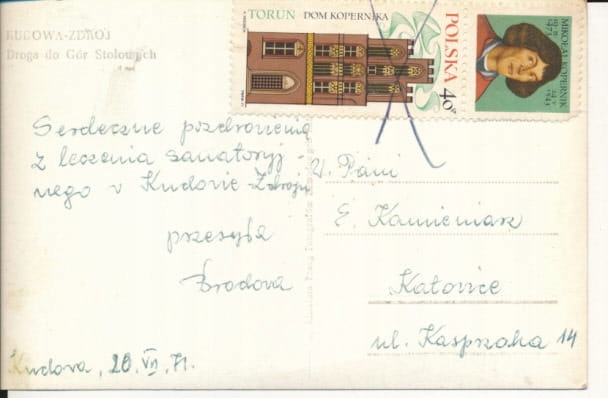 KUDOWA-ZDRÓJ
Droga do Gór Stołowych
TORUŃ DOM KOPERNIKA
POLSKA
40
MIKOŁAJ KOPERNIK
19 II 1473
24 V 1543
Serdeczne pozdrowienia
z leczenia sanatoryj-
nego w Kudowie-Zdroju
przesyła
Brodowa
Kudowa, 20.VII.71.
W. Pani
E. Kamieniarz
Katowice
ul. Kasprzaka 14